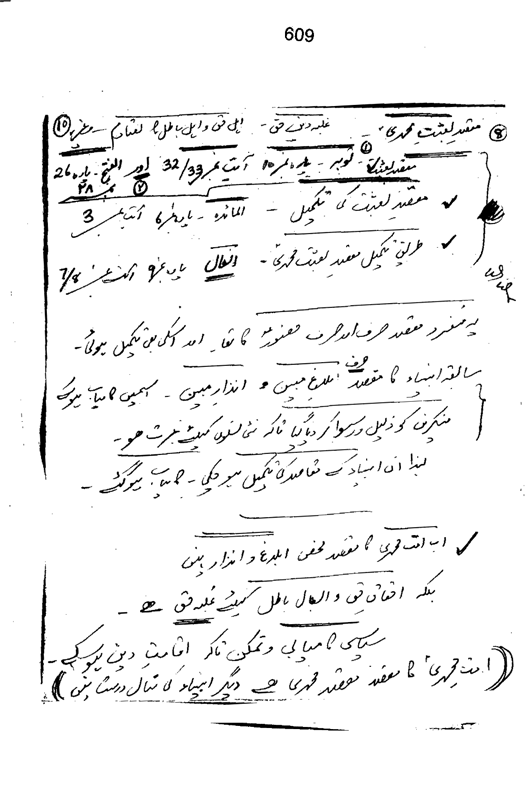 609
⑧ مقصد بعثتِ محمدیؐ - غلبہ دینِ حق - اہل حق و اہل باطل کا تصادم - ⑩
مقصد بعثت - ① توبہ - پارہ نمبر 10 آیت نمبر 32/33 اور الفتح - پارہ 26
② ۲۸
✓ مقصدِ بعثت کی تکمیل - المائدہ - پارہ نمبر 6 آیت نمبر 3
✓ طریقِ تکمیل مقصدِ بعثت محمدیؐ - انفال پارہ نمبر 9 آیت نمبر 7/8
یہ منفرد مقصد صرف اور صرف حضورؐ کا تھا اور اسکی ہی تکمیل ہوئی -
سابقہ انبیاء کا مقصد صرف ابلاغِ مبین و انذارِ مبین - اسمیں کامیاب ہوئے
منکرین کو ذلیل و رسوا کر دیا گیا تاکہ نئی نسلوں کیلئے عبرت ہو -
لہذا ان انبیاء کے مقاصد کی تکمیل ہو چکی - کامیاب ہو گئے -
✓ اب امت محمدی کا مقصد محض ابلاغ و انذار نہیں
بلکہ احقاقِ حق و ابطال باطل کیلئے غلبہ حق ہے -
سیاسی کامیابی و تمکن تاکہ اقامتِ دین ہو سکے -
((امتِ محمدیؐ کا مقصد مقصدِ محمدی ہے دیگر انبیاء کی مثال درست نہیں))